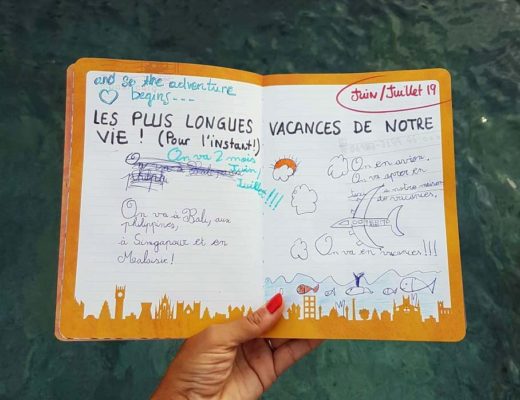 and so the adventure
begins ---
Juin/Juillet 19
LES PLUS LONGUES VACANCES DE NOTRE
VIE ! (Pour l'instant!)
On va 2 mois
Juin,
Juillet!!!
On va à Bali, aux
philippines,
à Singapour et en
Malaisie!
On en avion.
On va
à notre maison
de vacances.
On va en vacances!!!